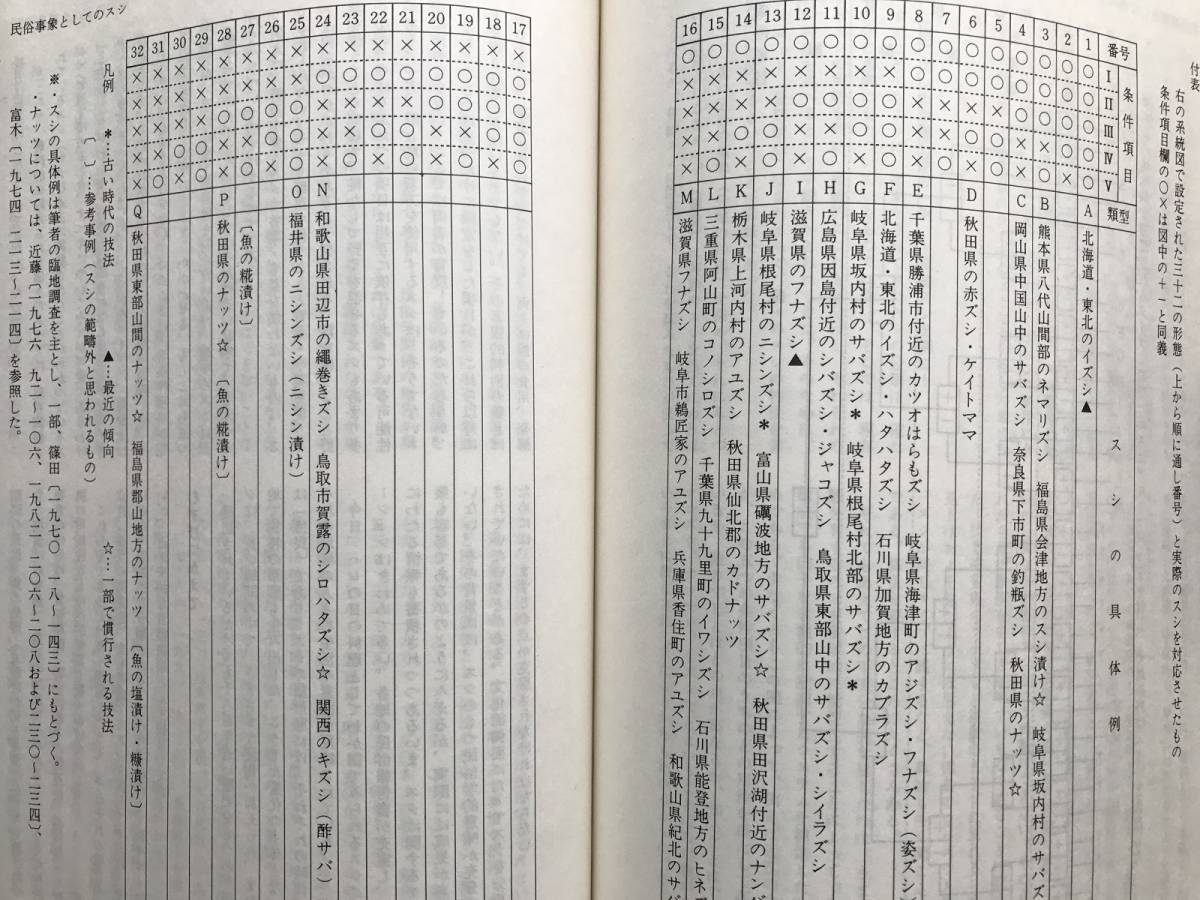 付表
右の系統図で設定された三十二の形態（上から順に通し番号）と実際のスシを対応させたもの
条件項目欄の○×は図中の＋－と同義
番号 条件項目 Ⅰ Ⅱ Ⅲ Ⅳ Ⅴ 類型 スシの具体例
1 ○ ○ ○ ○ ○ A 北海道・東北のイズシ▲
2 ○ ○ ○ ○ ×
3 ○ ○ ○ × ○ B 熊本県八代山間部のネマリズシ 福島県会津地方のスシ漬け☆ 岐阜県坂内村のサバズ
4 ○ ○ ○ × × C 岡山県中国山中のサバズシ 奈良県下市町の釣瓶ズシ 秋田県のナッツ☆
5 ○ ○ × ○ ○
6 ○ ○ × ○ × D 秋田県の赤ズシ・ケイトママ
7 ○ ○ × × ○
8 ○ ○ × × × E 千葉県勝浦市付近のカツオはらもズシ 岐阜県海津町のアジズシ・フナズシ（姿ズシ）
9 ○ × ○ ○ ○ F 北海道・東北のイズシ・ハタハタズシ 石川県加賀地方のカブラズシ
10 ○ × ○ ○ × G 岐阜県坂内村のサバズシ＊ 岐阜県根尾村北部のサバズシ＊
11 ○ × ○ × ○ H 広島県因島付近のシバズシ・ジャコズシ 鳥取県東部山中のサバズシ・シイラズシ
12 ○ × ○ × × I 滋賀県のフナズシ▲
13 ○ × × ○ ○ J 岐阜県根尾村のニシンズシ＊ 富山県礪波地方のサバズシ☆ 秋田県田沢湖付近のナンバ
14 ○ × × ○ × K 栃木県上河内村のアユズシ 秋田県仙北郡のカドナッツ
15 ○ × × × ○ L 三重県阿山町のコノシロズシ 千葉県九十九里町のイワシズシ 石川県能登地方のヒネズ
16 ○ × × × × M 滋賀県フナズシ 岐阜市鵜匠家のアユズシ 兵庫県香住町のアユズシ 和歌山県紀北のサバ
民俗事象としてのスシ
17 × ○ ○ ○ ○
18 × ○ ○ ○ ×
19 × ○ ○ × ○
20 × ○ ○ × ×
21 × ○ × ○ ○
22 × ○ × ○ ×
23 × ○ × × ○
24 × ○ × × × N 和歌山県田辺市の繩巻きズシ 鳥取市賀露のシロハタズシ☆ 関西のキズシ（酢サバ）
25 × × ○ ○ ○ O 福井県のニシンズシ（ニシン漬け）
26 × × ○ ○ ×
27 × × ○ × ○ 〔魚の糀漬け〕
28 × × ○ × × P 秋田県のナッツ☆ 〔魚の糀漬け〕
29 × × × ○ ○
30 × × × ○ ×
31 × × × × ○
32 × × × × × Q 秋田県東部山間のナッツ☆ 福島県郡山地方のナッツ 〔魚の塩漬け・糠漬け〕
凡例 ＊…古い時代の技法 ▲…最近の傾向 ☆…一部で慣行される技法
〔 〕…参考事例（スシの範疇外と思われるもの）
※・スシの具体例は筆者の臨地調査を主とし、一部、篠田〔一九七〇 一八～一四三〕にもとづく。
・ナッツについては、近藤〔一九七六 九二～一〇六、一九八二 二〇六～二〇八および二三〇～二三四〕、
富木〔一九七四 二一三～二一四〕を参照した。